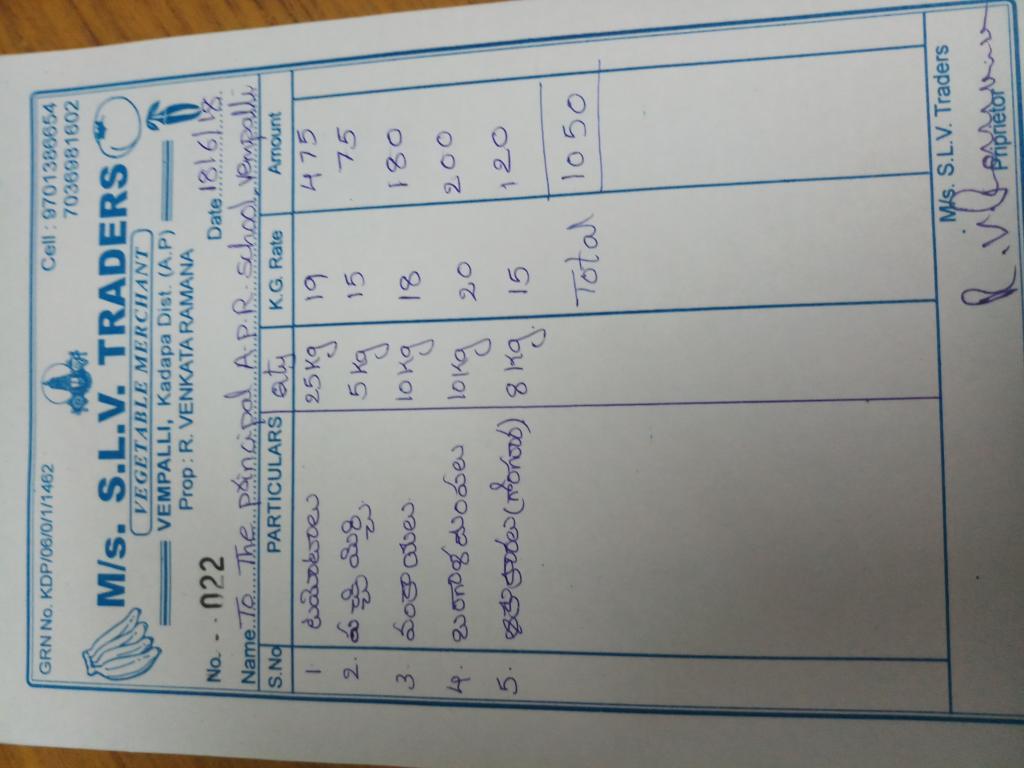 GRN No. KDP/06/0/1/1462 Cell : 9701386654
7036981602
M/s. S.L.V. TRADERS
VEGETABLE MERCHANT
VEMPALLI, Kadapa Dist. (A.P)
Prop : R. VENKATA RAMANA
No. 022 Date 18/6/18
Name To The principal A.P.R. School Vempalli
S.No PARTICULARS Qty K.G. Rate Amount
1 టమోటాలు 25 Kg 19 475
2. పచ్చి మిర్చి 5 Kg 15 75
3. వంకాయలు 10 Kg 18 180
4. బంగాళదుంపలు 10 Kg 20 200
5. 8 Kg 15 120
Total 1050
M/s. S.L.V. Traders
Proprietor